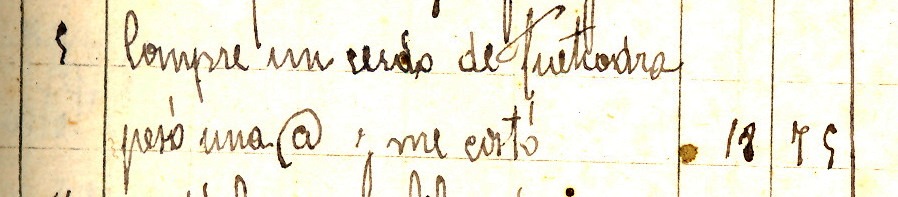 5 Compre un cerdo de
pesó una @ y me costó 18 75